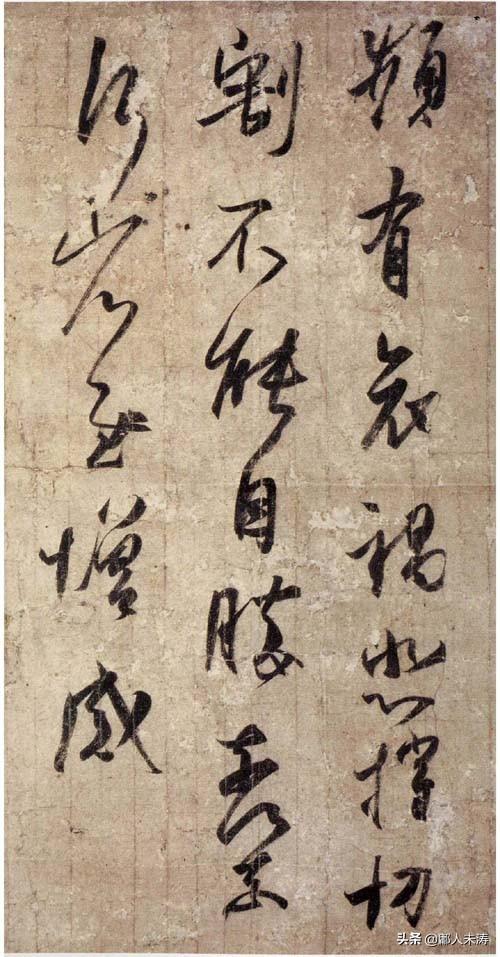 頻有哀禍悲摧切
割不能自勝奈何奈
何省慰增感
头条 @人未涛